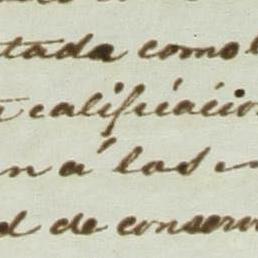 tada como
califició
n á los
d de conserv